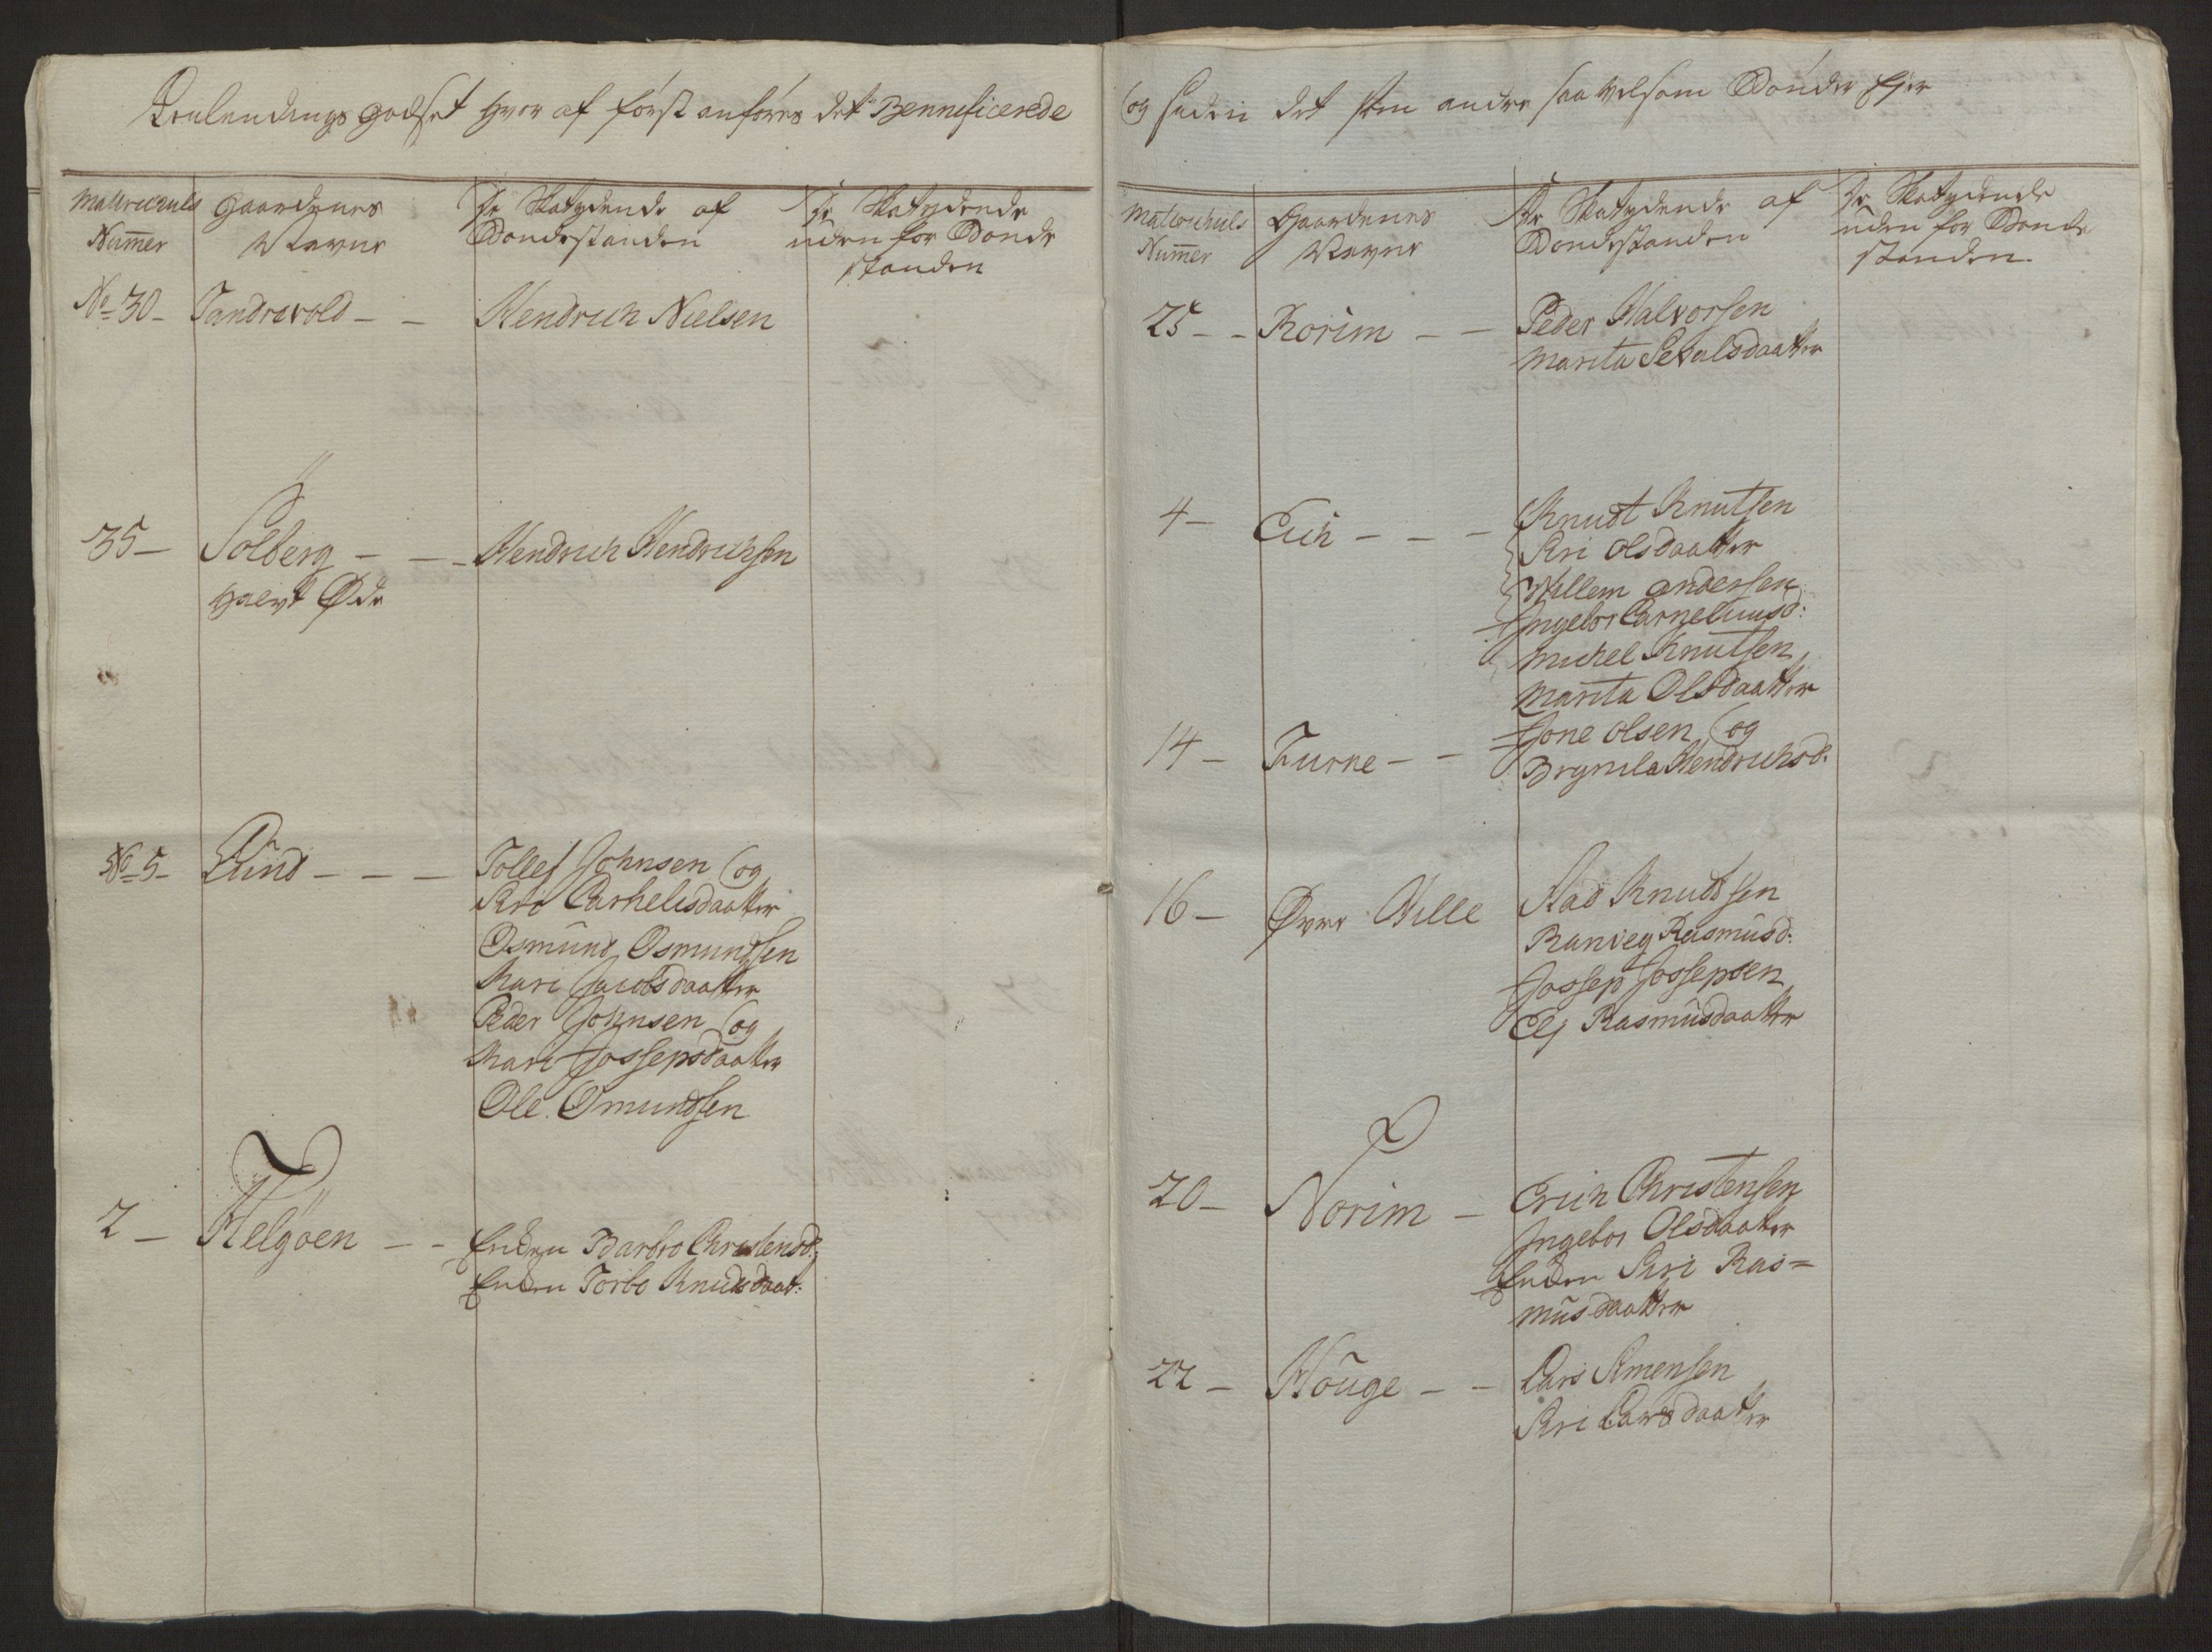 godset hvor af først anføres det Bennificerede
Matrichuls
Numer
Gaardenes
Navne
De Skatydende af
Bondestanden
De Skatydende
uden for Bonde
standen
No 30 - Tandrevold - - Hendrich Nielsen
35 - Solberg - - - Hendrich Hendrichsen
halvt Øde
No 5 - Lund - - - Tollef Johnsen og
Siri Carhelisdaatter
Osmund Osmundsen
Kari Jacobsdaatter
Peder Johnsen og
Kari Jossepsdaatter
Ole Omundsen
2 - Helgøen - - Enken Barbro Christensd:
Enken Torbo Knudsdaat:
og siden det andre saavelsom Bønder
Matrichuls
Numer
Gaardenes
Navne
De Skatydende af
Bondestanden
De Skatydende
uden for Bonde
standen
25 - - Korim - - Peder Halvorsen
Marita Sevalsdaatter
4 - Eich - - - Knudt Knutsen
Siri Olsdaatter
Willem Andersen
Ingebor Carneliiusd:
Michel Knutsen
Marita Olsdaatter
14 - Turne - - Jone Olsen og
Brynila Hendrichsd:
16 - Øvre Wille Aad Knudtsen
Ranveg Rasmusd:
Jossep Jossepsen
Elj Rasmusdaatter
20 - Norim - Erich Christensen
Ingebor Olsdaatter
Enken Siri Ras=
musdaatter
22 - Houge - - Lars Simensen
Siri Larsdaatter